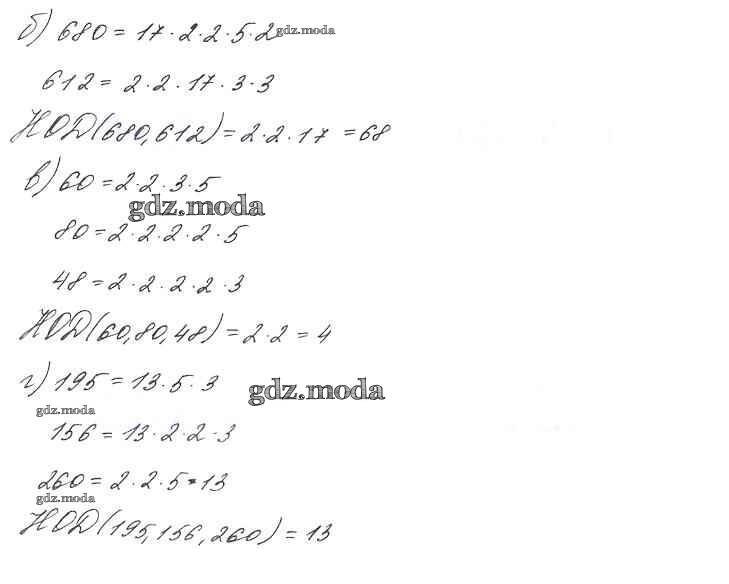 б) 680 = 17 · 2 · 2 · 5 · 2 gdz.moda
612 = 2 · 2 · 17 · 3 · 3
НОД(680,612) = 2 · 2 · 17 = 68
в) 60 = 2 · 2 · 3 · 5
gdz.moda
80 = 2 · 2 · 2 · 2 · 5
48 = 2 · 2 · 2 · 2 · 3
НОД(60,80,48) = 2 · 2 = 4
г) 195 = 13 · 5 · 3 gdz.moda
gdz.moda
156 = 13 · 2 · 2 · 3
260 = 2 · 2 · 5 · 13
gdz.moda
НОД(195,156,260) = 13